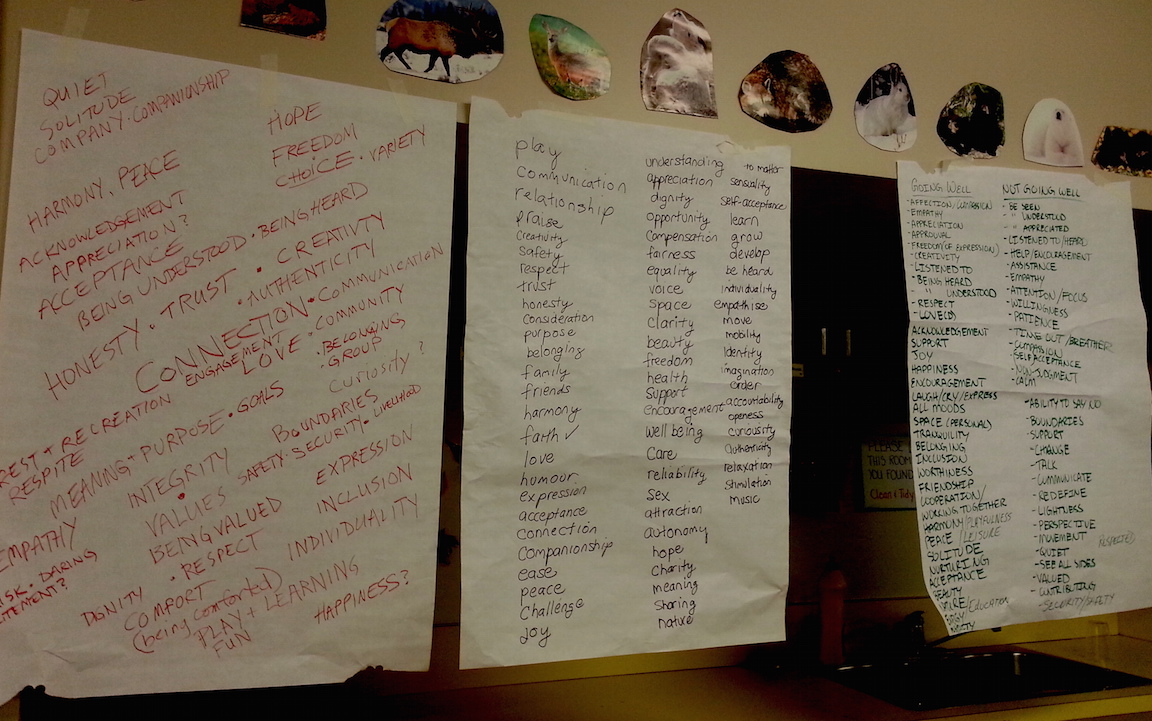 QUIET
SOLITUDE
COMPANY · COMPANIONSHIP
HARMONY · PEACE
ACKNOWLEDGEMENT
APPRECIATION?
ACCEPTANCE
BEING UNDERSTOOD · BEING HEARD
HOPE
FREEDOM
CHOICE · VARIETY
HONESTY · TRUST · CREATIVITY
· AUTHENTICITY
CONNECTION · COMMUNICATION
ENGAGEMENT
LOVE · COMMUNITY
· BELONGING
GROUP
REST + RECREATION
RESPITE
CURIOSITY?
MEANING + PURPOSE · GOALS
BOUNDARIES
SAFETY · SECURITY · LIVELIHOOD
INTEGRITY
VALUES
EXPRESSION
EMPATHY
BEING VALUED
INCLUSION
· RESPECT
INDIVIDUALITY
· DARING
DIGNITY
COMFORT
(being comforted)
PLAY +
FUN
LEARNING
HAPPINESS?
play
communication
relationship
praise
creativity
safety
respect
trust
honesty
consideration
purpose
belonging
family
friends
harmony
faith ✓
love
humour
expression
acceptance
connection
companionship
ease
peace
challenge
joy
understanding
appreciation
dignity
opportunity
compensation
fairness
equality
voice
space
clarity
beauty
freedom
health
support
encouragement
well being
care
reliability
sex
attraction
autonomy
hope
charity
meaning
sharing
nature
to matter
sensuality
self-acceptance
learn
grow
develop
be heard
individuality
empathise
move
mobility
identity
imagination
order
accountability
openess
curiousity
authenticity
relaxation
stimulation
music
GOING WELL
- AFFECTION/COMPASSION
- EMPATHY
- APPRECIATION
- APPROVAL
- FREEDOM (OF EXPRESSION)
- CREATIVITY
- LISTENED TO
- BEING HEARD
- " UNDERSTOOD
- RESPECT
- LOVE(D)
ACKNOWLEDGEMENT
SUPPORT
JOY
HAPPINESS
ENCOURAGEMENT
LAUGH/CRY/EXPRESS
ALL MOODS
SPACE (PERSONAL)
TRANQUILITY
BELONGING
INCLUSION
WORTHINESS
FRIENDSHIP
COOPERATION/
WORKING TOGETHER
HARMONY/PLAYFULNESS
PEACE / LEISURE
SOLITUDE
NURTURING
ACCEPTANCE
BEAUTY
NOT GOING WELL
- BE SEEN
- " UNDERSTOOD
- " APPRECIATED
- LISTENED TO/HEARD
- HELP/ENCOURAGEMENT
- ASSISTANCE
- EMPATHY
- ATTENTION/FOCUS
- WILLINGNESS
- PATIENCE
- TIME OUT/BREATHER
- COMPASSION
- SELF ACCEPTANCE
- NON-JUDGMENT
- CALM
- ABILITY TO SAY NO
- BOUNDARIES
- SUPPORT
- CHANGE
- TALK
- COMMUNICATE
- REDEFINE
- LIGHTNESS
- PERSPECTIVE
- MOVEMENT
RESPECTED
- QUIET
- SEE ALL SIDES
- VALUED
- CONTRIBUTING
- SECURITY/SAFETY
PLEASE
THIS ROOM
YOU FOUND
Clean & Tidy